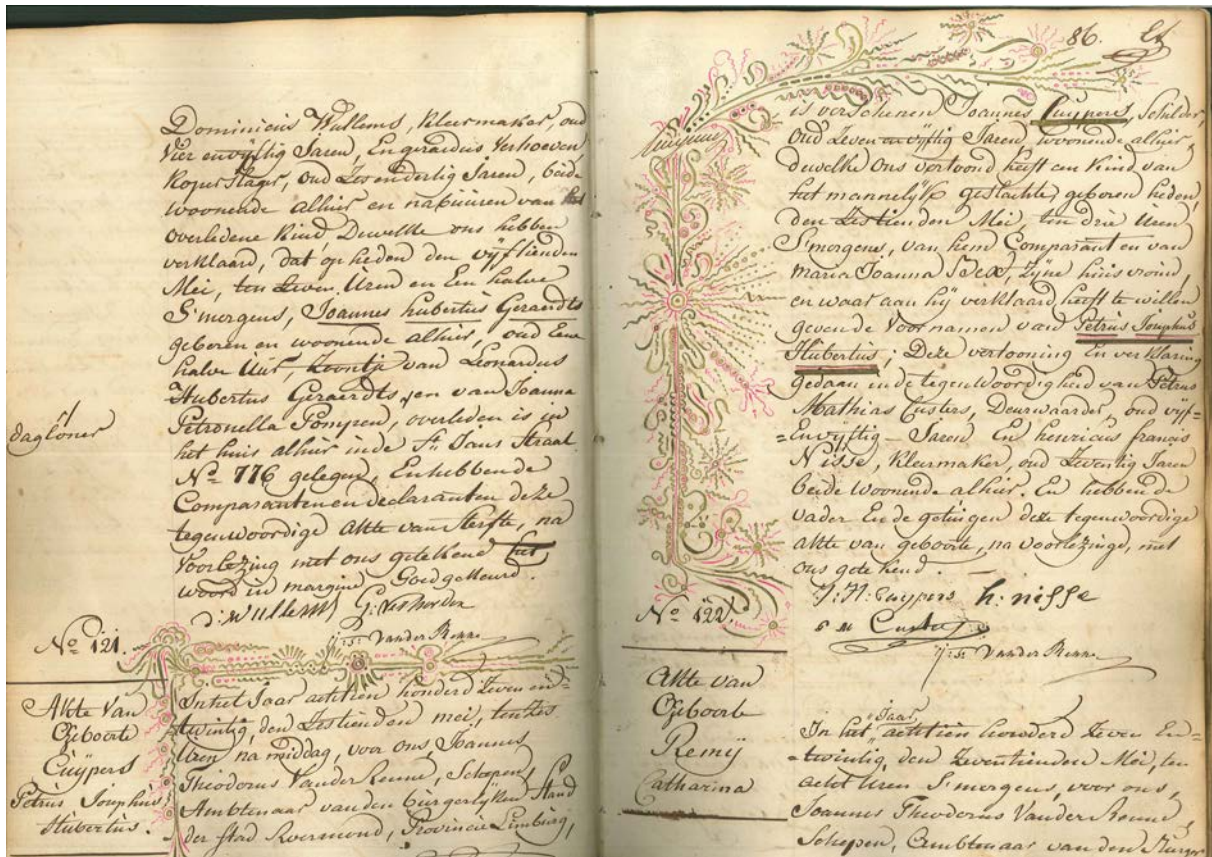 Dominicus Wullems, Kleermaker, oud
Vier envyftig Jaren, En gerardus Verhoeven,
Koperslager, oud Zesendertig Jaren, beide
woonende alhier en nabuuren van het
overledene Kind, Dewelke ons hebben
verklaard, dat op heden den vyftienden
Mei, ten Zeven Uren en Een halve
S'morgens, Joannes hubertus Geraerdts
geboren en woonende alhier, oud Eene
halve Uur, Zoontje van Leonardus
Hubertus Geraerdts, en van Joanna
Petronella Pompen, overleden is in
het huis alhier inde St Jans Straat
No 776 gelegen, En hebben de
Comparanten en declaranten deze
tegenwoordige Akte van sterfte, na
Voorlezing met ons getekend het
woord in margine Goedgekeurd.
daglöner
D: Wullems G: Verhoeven
J: T: Vander Renne
No 121.
Akte Van
Geboorte
Cuypers
Petrus Josephus
Hubertus.
In het Jaar achttien honderd Zeven en=
twintig, den Zestienden mei, ten zes
Uren na middag, voor ons, Joannes
Theodorus Vander Renne, Schepen,
Ambtenaar van den burgerlyken Stand
der stad Roermond, Provincie Limburg,
86.
is verschenen Joannes Cuypers, Schilder,
oud Zeven en vyftig Jaren, woonende alhier,
dewelke Ons vertoond heeft een Kind van
het mannelyke geslachte, geboren heden,
den Zestienden Mei, ten drie Uren
S'morgens, van hem Comparant en van
Maria Joanna Bex, Zyne huisvrouw,
en waar aan hij verklaard heeft te willen
geven de Voornamen van Petrus Josephus
Hubertus; Deze vertooning En verklaring
gedaan in de tegenwoordigheid van Petrus
Mathias Custers, Deurwaarder, oud vyf=
=Envyftig Jaren En henricus francis
Nisse, Kleermaker, oud Zeventig Jaren
beide Woonende alhier. En hebben de
vader En de getuigen deze tegenwoordige
akte van geboorte, na voorlezinge, met
ons getekend.
J: H: Cuypers h: nisse
Custers
J: T: Vander Renne
No 122.
Akte van
Geboorte
Remÿ
Catharina
In het Jaar achttien honderd Zeven En=
=twintig, den Zeventienden Mei, ten
acht Uren S'morgens, voor ons,
Joannes Theodorus Vander Renne,
Schepen, Ambtenaar van den Burger